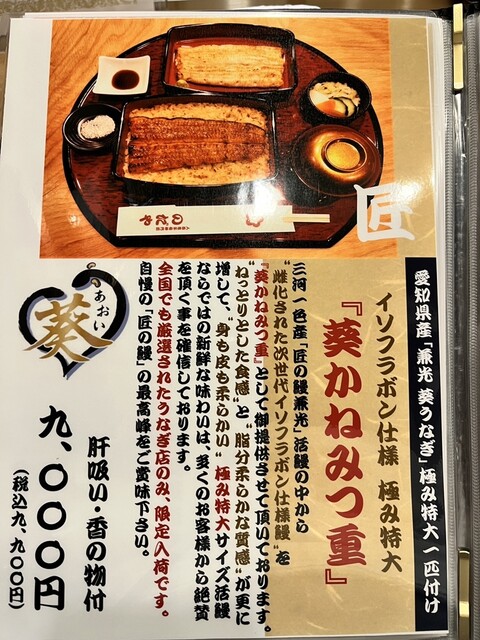 匠
愛知県産「兼光 葵うなぎ」極み特大一匹付け
イソフラボン仕様 極み特大
『葵かねみつ重』
三河一色産「匠の鰻兼光」活鰻の中から
“雌化された次世代イソフラボン仕様鰻”を
『葵かねみつ重』として御提供させて頂いております。
“ねっとりとした食感”と“脂分柔らかな質感”が更に
増して、“身も皮も柔らかい”極み特大サイズ活鰻
ならではの新鮮な味わいは、多くのお客様から絶賛
を頂く事を確信しております。
全国でも厳選されたうなぎ店のみ、限定入荷です。
自慢の「匠の鰻」の最高峰をご賞味下さい。
あおい
葵
肝吸い・香の物付
九、〇〇〇円
(税込九、九〇〇円)